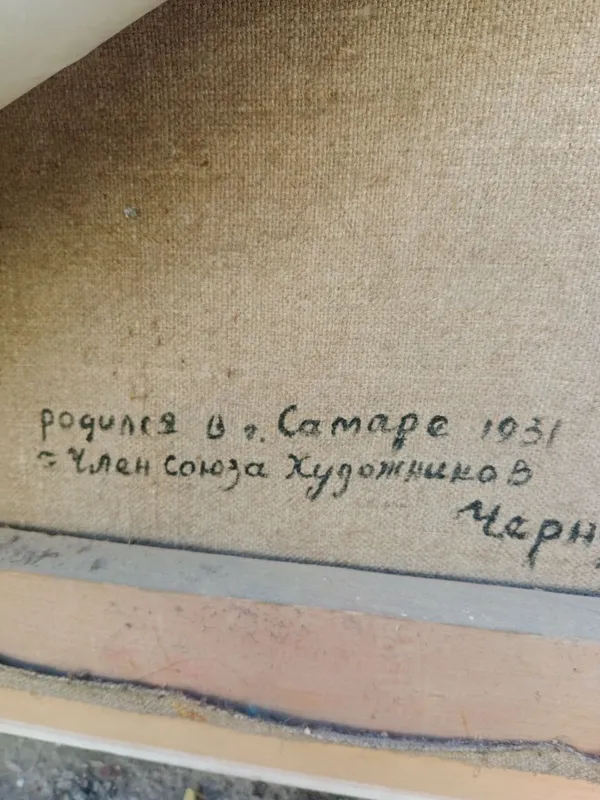 родился в г. Самаре 1931
= Член Союза Художников
Черн